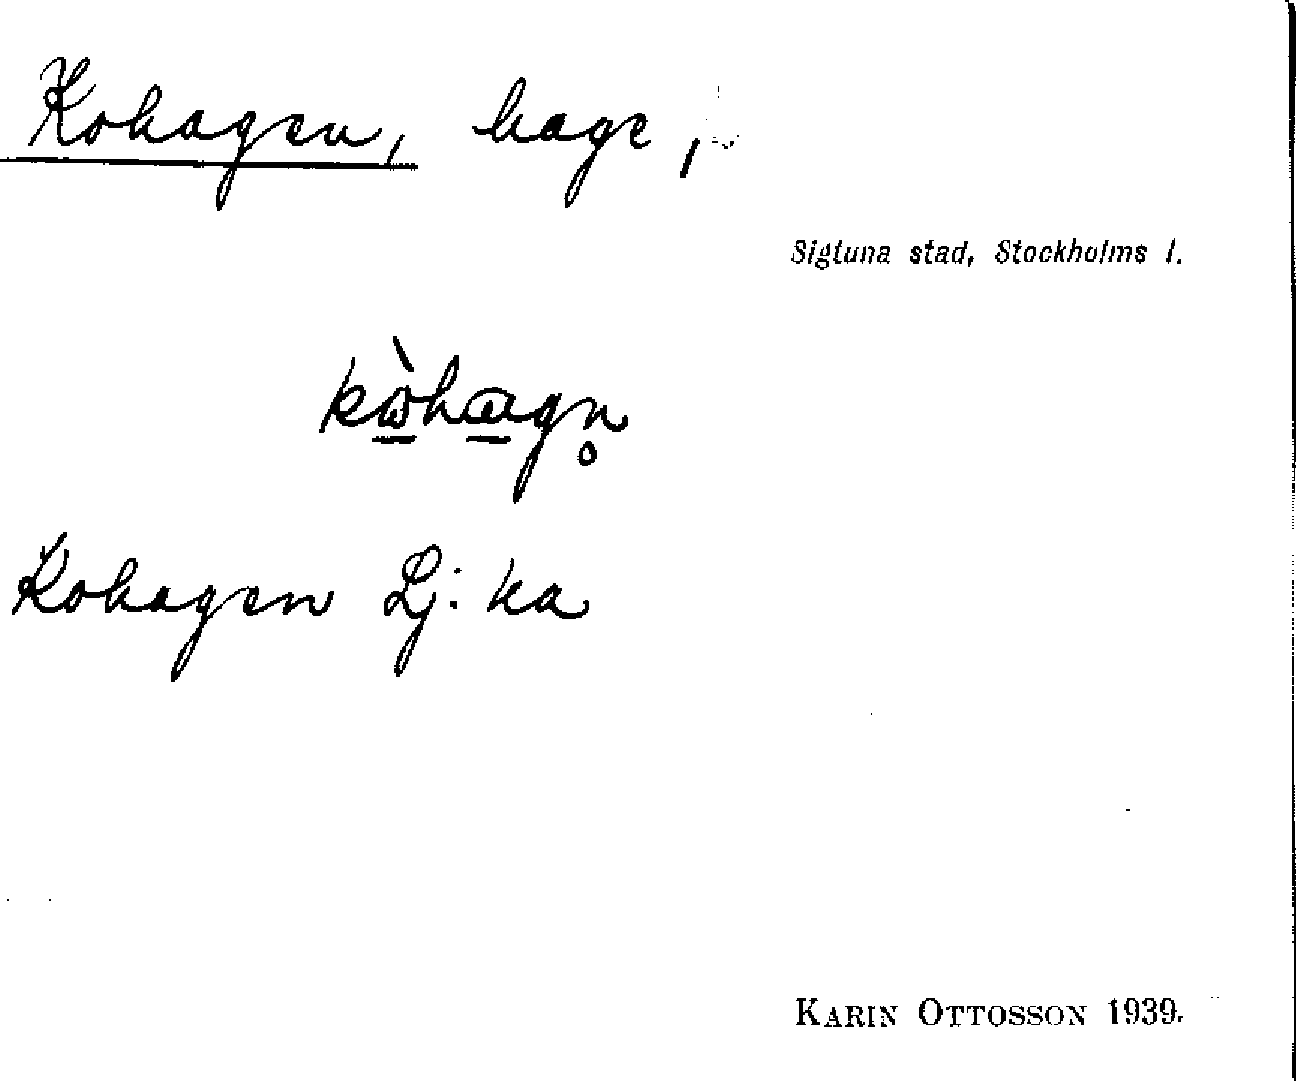 Kohagen, hage,
Sigtuna stad, Stockholms l.
kὼ̲ha̲gn̥
Kohagen Lj: ka
KARIN OTTOSSON 1939.